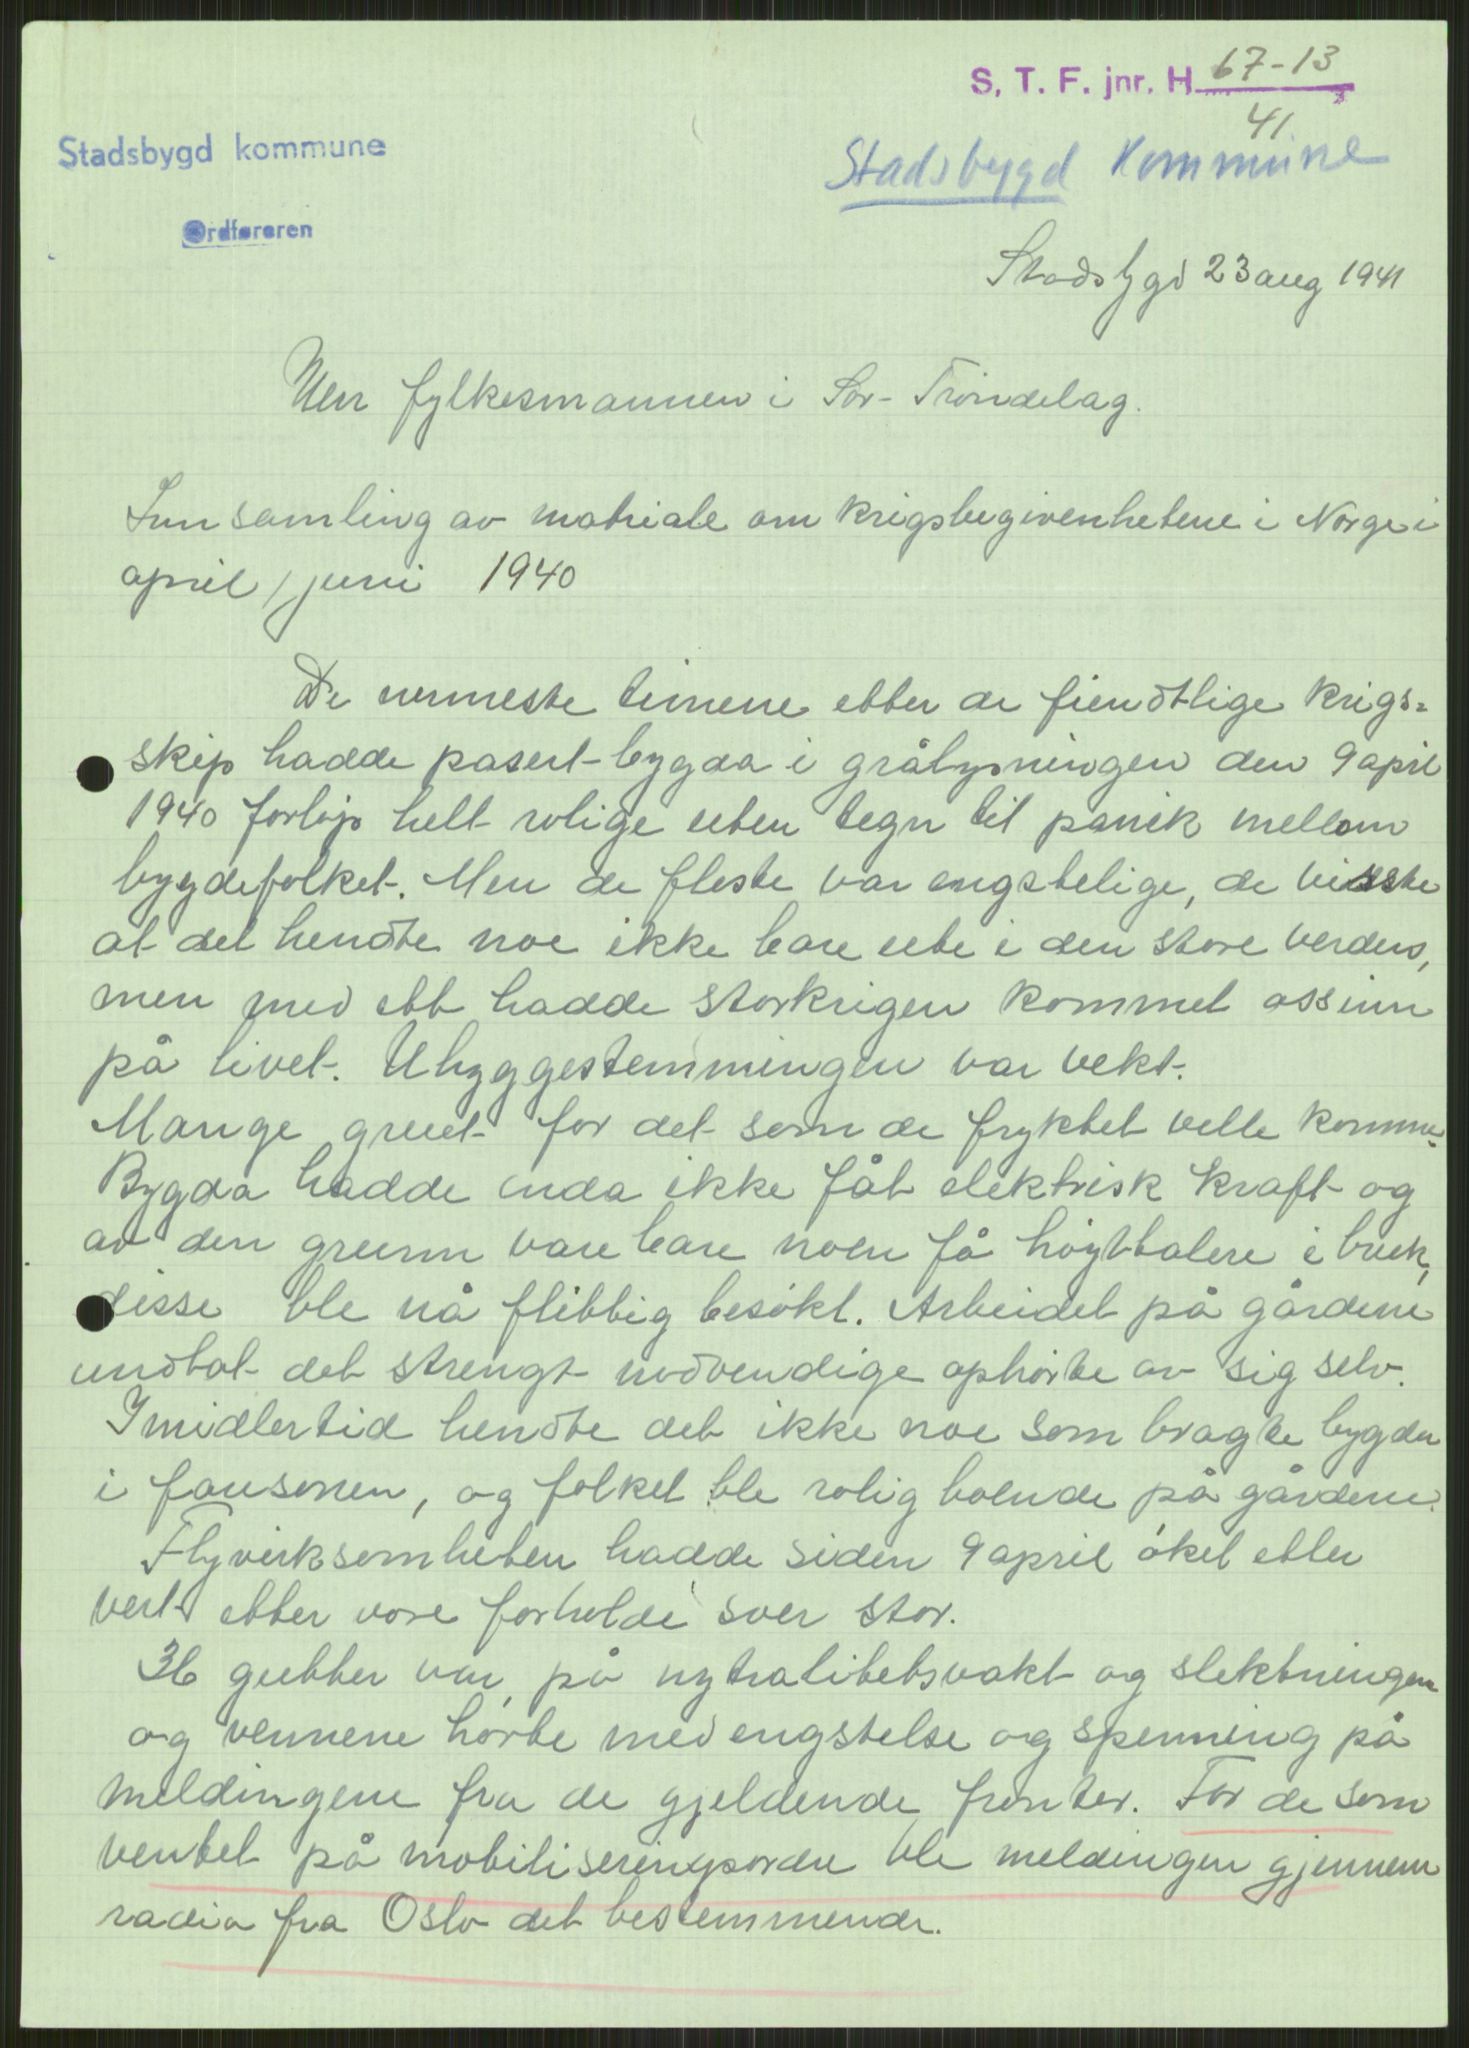 S. T. F. jnr. H 67-13
41
Stadsbygd kommune
Stadsbygd Kommune
Ordføreren
Stadsbygd 23 aug 1941
Herr fylkesmannen i Sør-Trøndelag.
Innsamling av matriale om krigsbegivenhetene i Norge i
april/juni 1940
De nermeste timene etter de fiendtlige krigs=
skip hadde pasert bygda i grålysningen den 9 april
1940 forløp helt rolige uten tegn til panik mellom
bygdefolket. Men de fleste var engstelige, de visste
at det hendte noe ikke bare ute i den store verden,
men med ett hadde storkrigen kommet oss inn
på livet. Uhyggestemningen var vekt.
Mange gruet for det som de fryktet ville komme.
Bygda hadde enda ikke fåt elektrisk kraft og
av den grunn var bare noen få høyttalere i bruk,
disse ble nå flittig besøkt. Arbeidet på gårdene
undtat det strengt nødvendige ophørte av sig selv.
Imidlertid hendte det ikke noe som bragte bygden
i faresonen, og folket ble rolig boende på gårdene.
Flyverksomheten hadde siden 9 april øket etter
vert etter vore forholde svær stor.
36 gutter var på nytralitetsvakt og slektningene
og vennene hørte med engstelse og spenning på
meldingene fra de gjeldende fronter. For de som
ventet på mobiliseringsordre ble meldingen gjennem
radio fra Oslo det bestemmende.